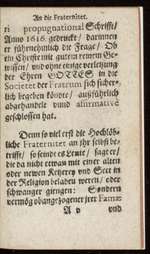 An die Fraternitet.
ri propugnational Schrifft/
Anno 1616. gedruckt/ darinnen
er fürnehmlich die Frage/ Ob
ein Christe mit gutem reinem Ge-
wissen/ und ohne einige verletzung
der Ehren GOTTES in die
Societet der Fratrum sich sicher-
lich begeben könte/ ausführlich
abgehandelt unnd affirmative
geschlossen hat.
Denn so viel erst die Hochlöb-
liche Fraternitet an ihr selbst be-
trifft/ so seindt es Leute/ sagt er/
die da nicht etwan mit einer alten
oder newen Ketzerey und Sect in
der Religion beladen weren/ oder
schwanger giengen: Sondern
vermög obangezogener jrer Famæ
A v und